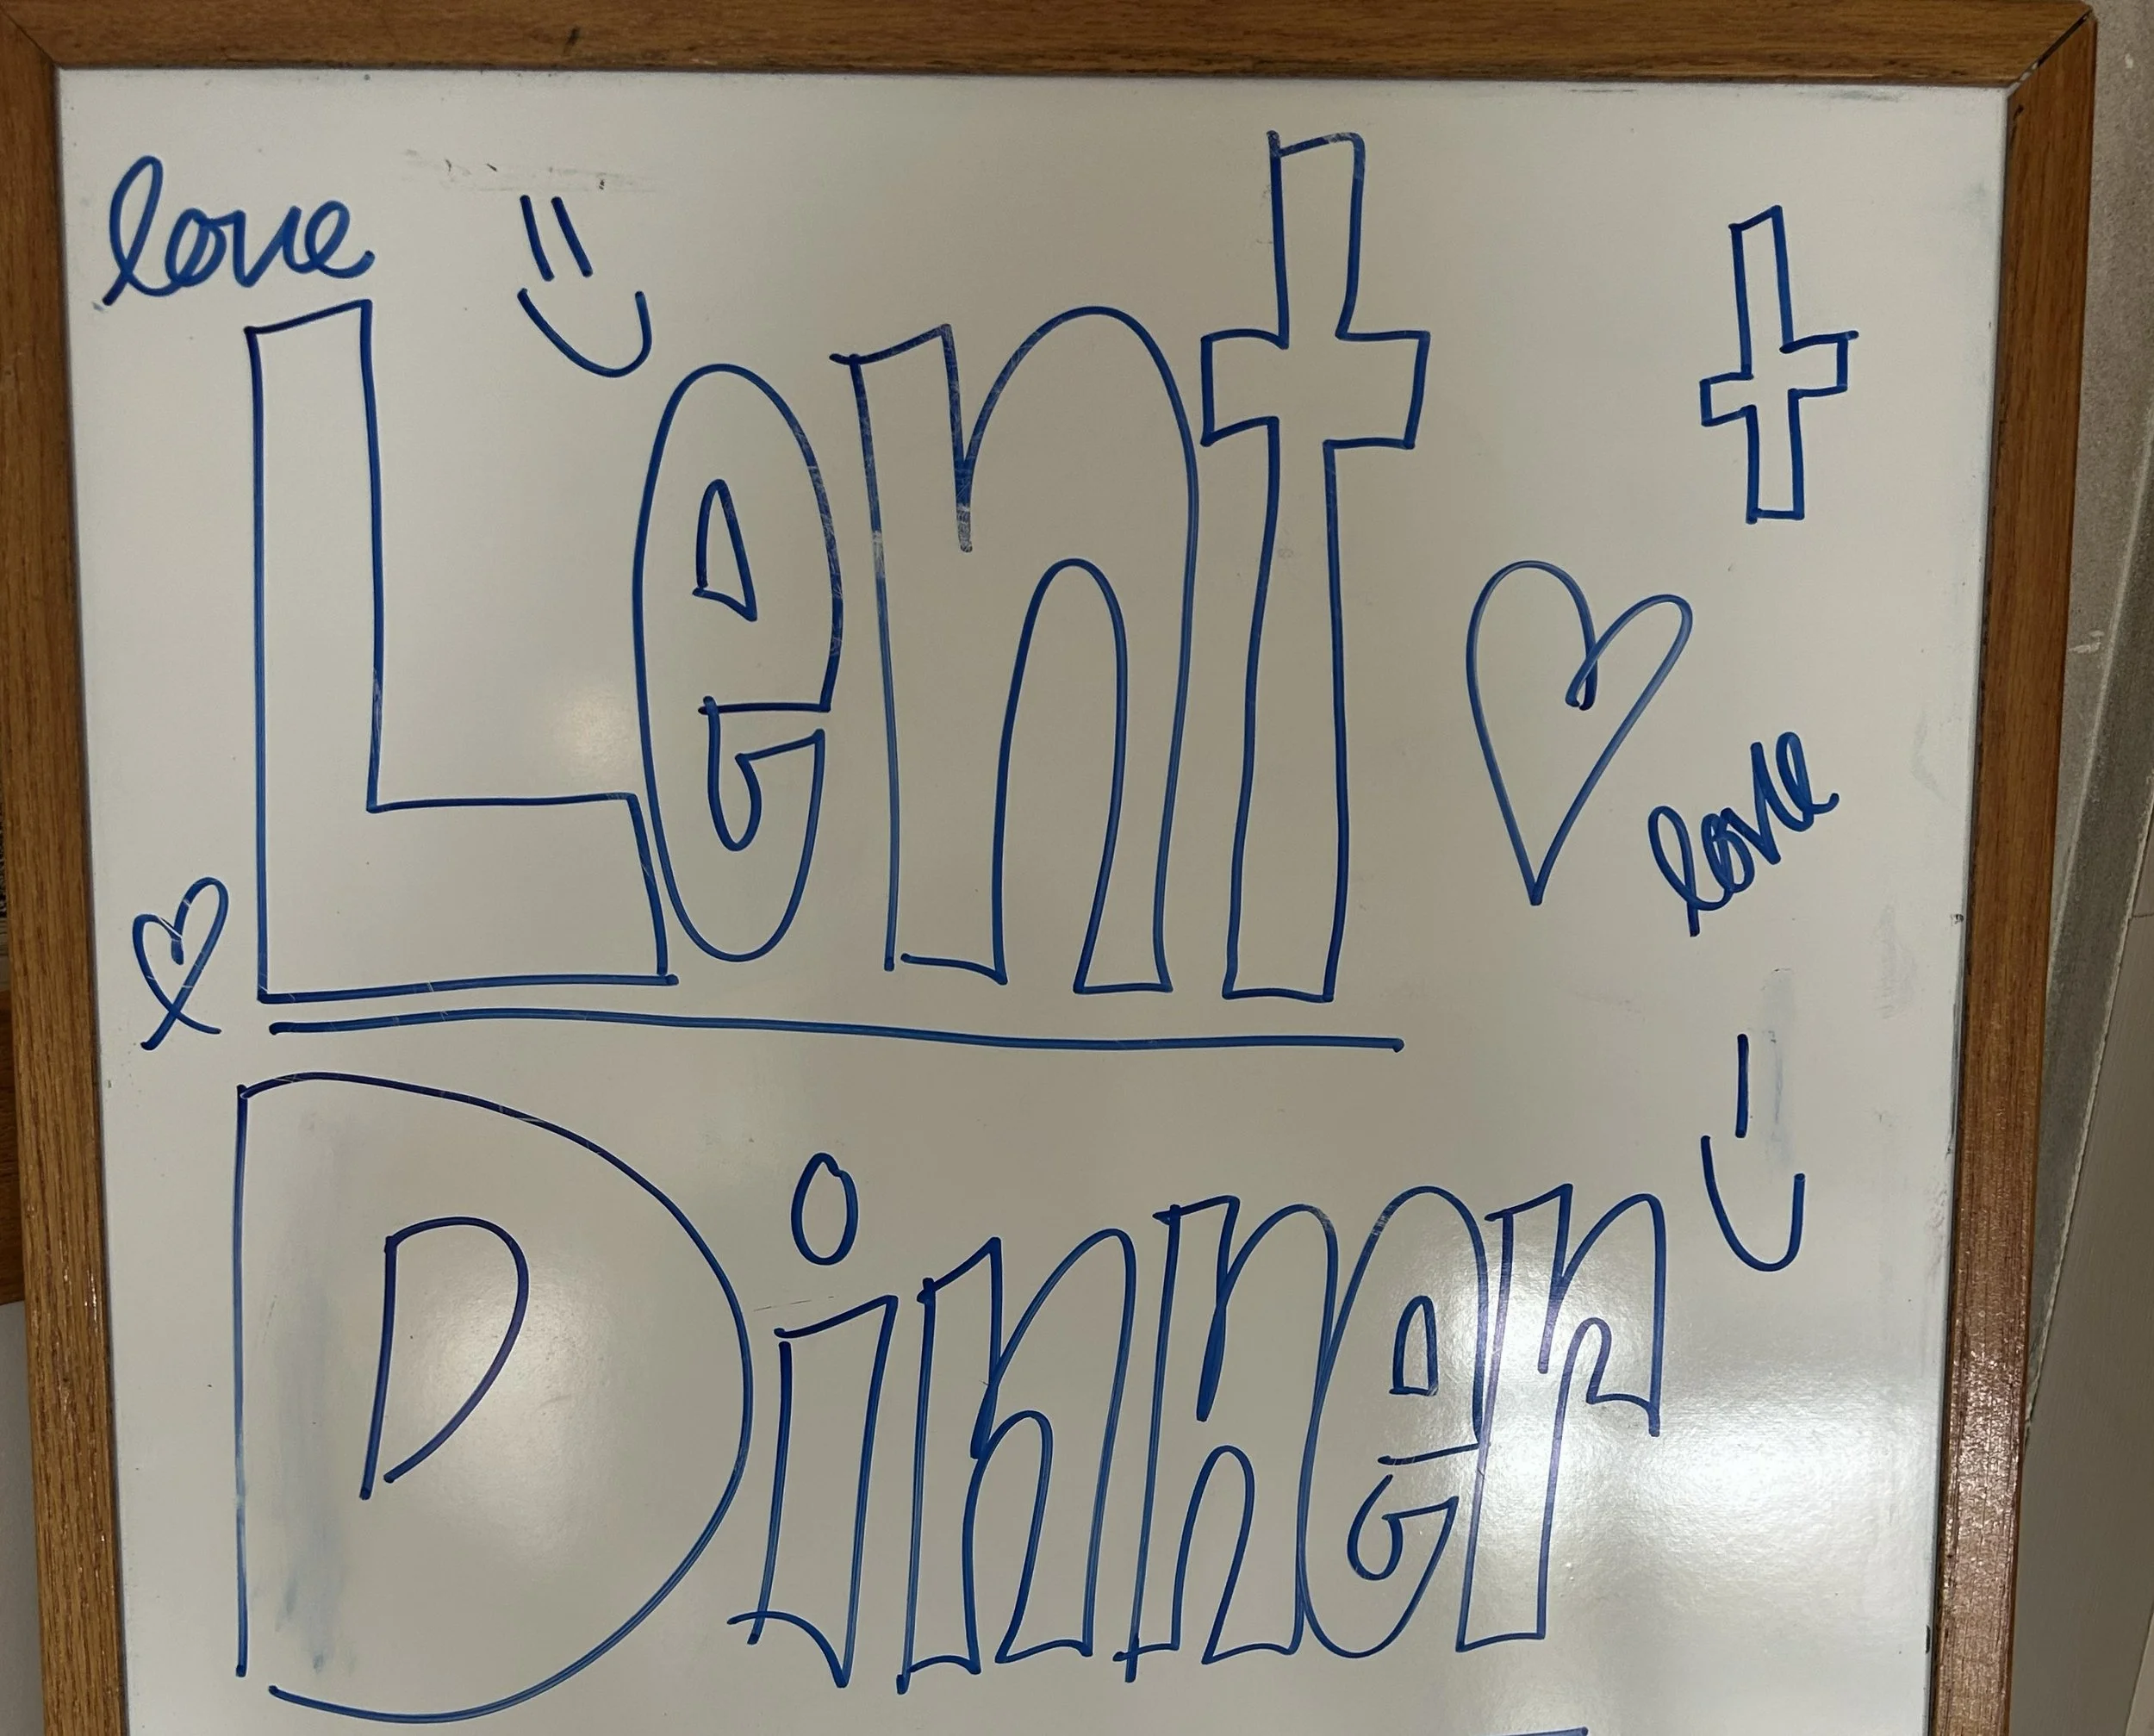 love
Lent
love
Dinner